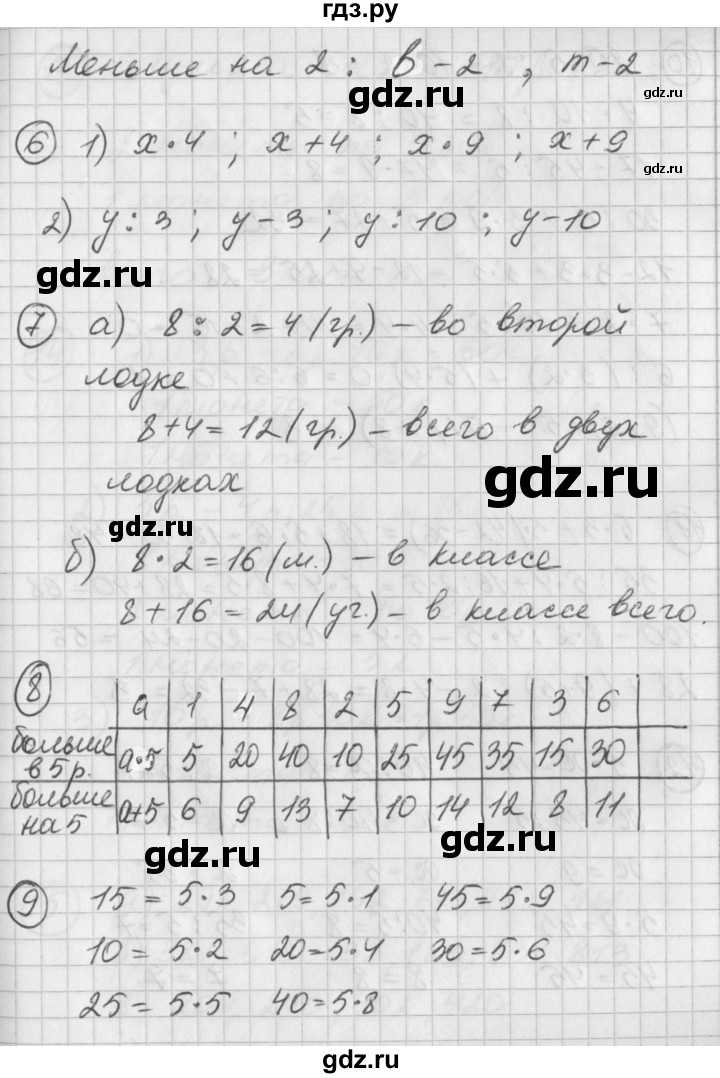 гдз.ру
Меньше на 2: в-2, m-2
gdz.ru
6 1) x·4; x+4; x·9; x+9
gdz.ru
2) y:3; y-3; y:10; y-10
gdz.ru
7 а) 8:2=4(гр.) – во второй
лодке
8+4=12(гр.) – всего в двух
gdz.ru
лодках
gdz.ru
б) 8·2=16(м.) – в классе
8+16=24(уг.) – в классе всего.
8 a 1 4 8 2 5 9 7 3 6
больше в 5 р. a·5 5 20 40 10 25 45 35 15 30
больше на 5 a+5 6 9 13 7 10 14 12 8 11
gdz.ru gdz.ru
9 15=5·3 5=5·1 45=5·9
10=5·2 20=5·4 30=5·6
25=5·5 40=5·8
gdz.ru